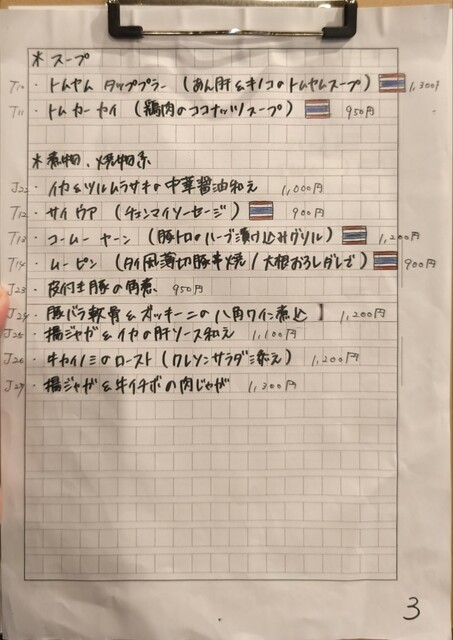 * スープ
T10・トムヤム タップブラー (あん肝&キノコのトムヤムスープ) 1,300円
T11・トムカーカイ (鶏肉のココナッツスープ) 950円
*煮物、焼物系
J22・イカ&ツルムラサキの中華醤油和え 1,000円
T12・サイウア (チェンマイソーセージ) 900円
T13・コームーヤーン (豚トロのハーブ漬け込みグリル) 1,200円
T14・ムーピン (タイ風薄切豚串焼/大根おろしダレで) 900円
J23・皮付き豚の角煮 950円
J24・豚バラ軟骨&ズッキーニの八角ワイン煮込 1,200円
J25・揚ジャガ&イカの肝ソース和え 1,100円
J26・牛カイノミのロースト (クレソンサラダ添え) 1,200円
J27・揚ジャガ&牛イチボの肉じゃが 1,300円
3